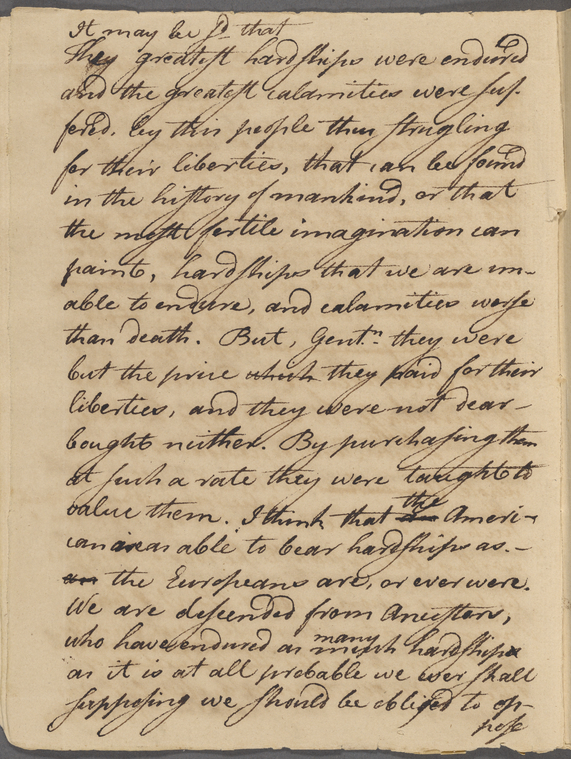 It may be sd. that
They greatest hardships were endured
and the greatest calamities were suf-
fered, by this people thus strugling
for their liberties, that can be found
in the history of mankind, or that
the most fertile imagination can
paint, hardships that we are un-
able to endure, and calamities worse
than death. But, Gentn. they were
but the price which they paid for their
liberties, and they were not dear-
bought neither. By purchasing them
at such a rate they were taught to
value them. I think that the Ameri-
can as able to bear hardships as.-
the Europeans are, or ever were.
We are descended from Ancestors,
who have endured as many much hardships
as it is at all probable we ever shall
supposing we should be obliged to op-
pose